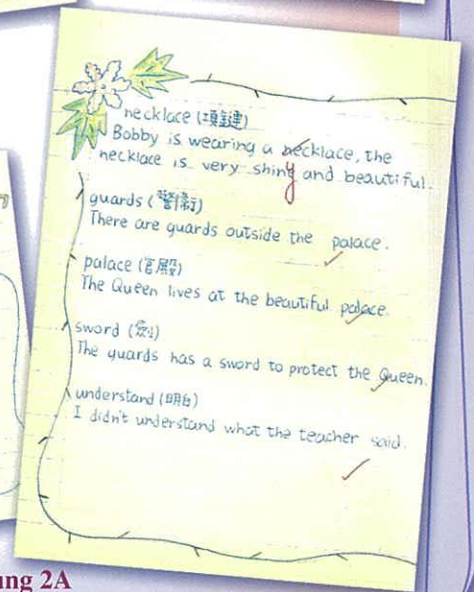 necklace (項鏈)
Bobby is wearing a necklace, the
necklace is very shiny and beautiful.
guards (警衛)
There are guards outside the palace.
palace (宮殿)
The Queen lives at the beautiful palace.
sword (劍)
The guards has a sword to protect the Queen.
understand (明白)
I didn't understand what the teacher said.
ung 2A